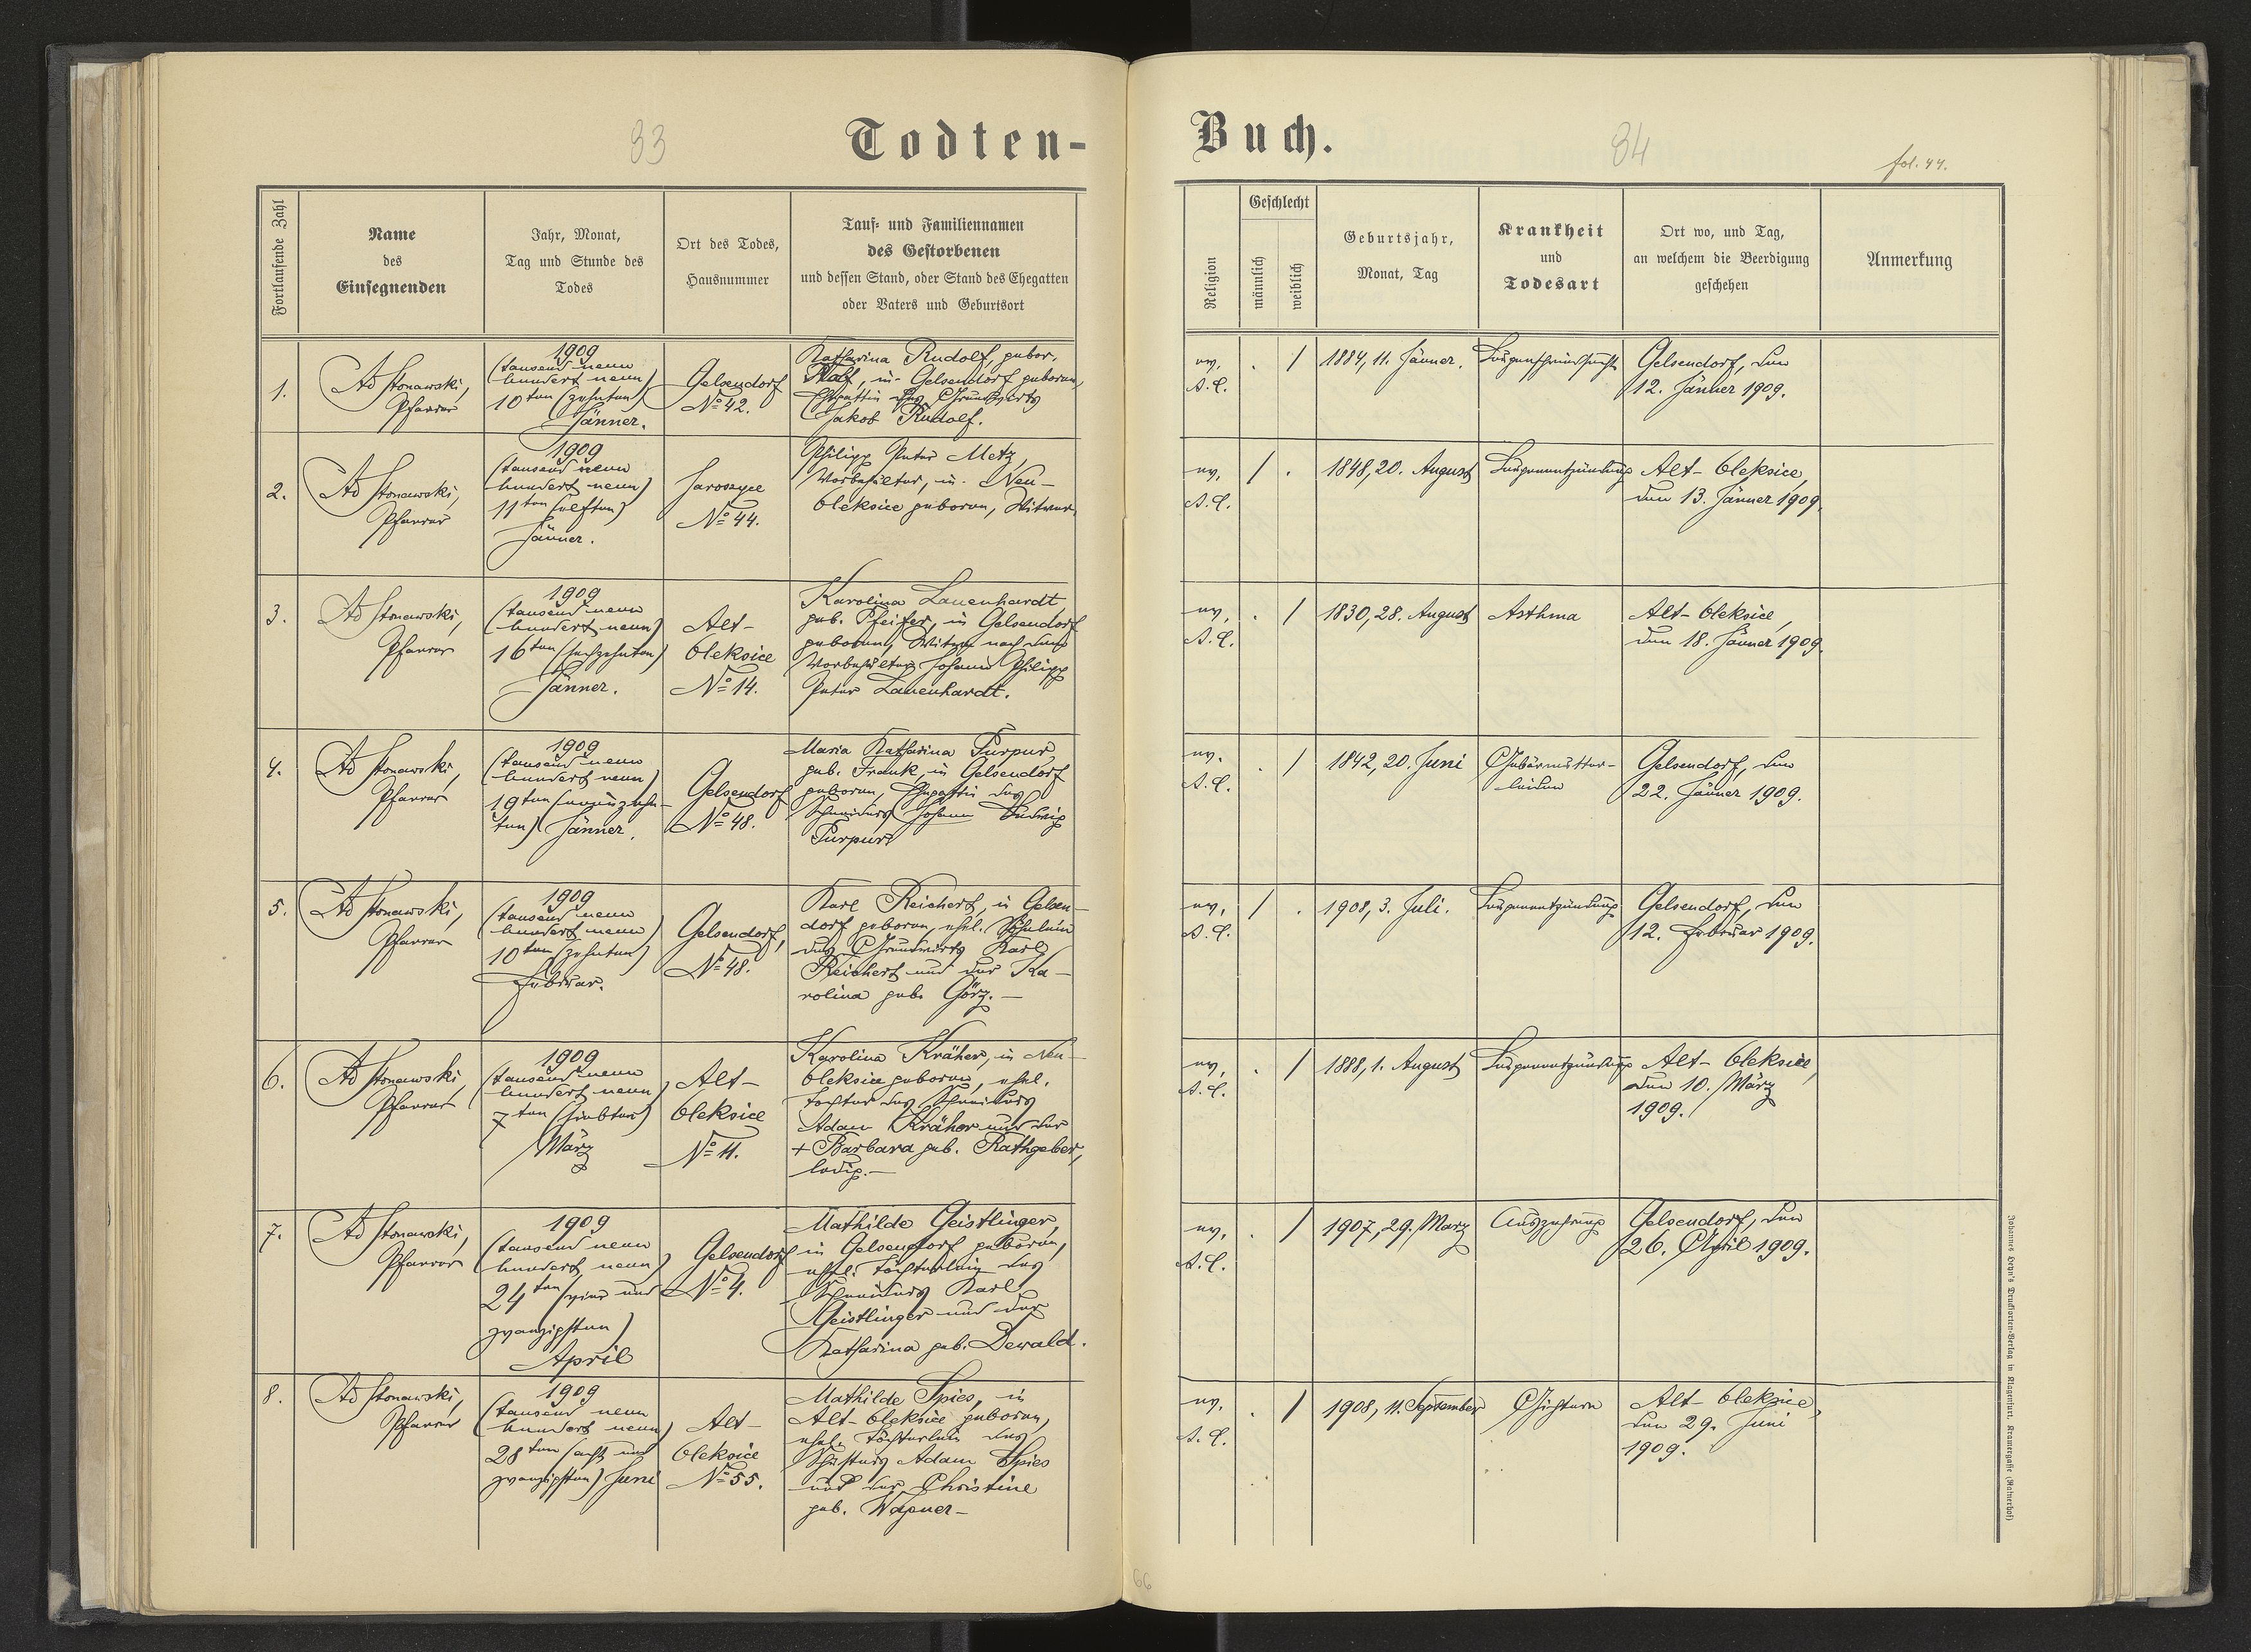 33
Todten-
Fortlaufende Zahl
Name
des
Einsegnenden
Jahr, Monat,
Tag und Stunde des
Todes
Ort des Todes,
Hausnummer
Tauf- und Familiennamen
des Gestorbenen
und dessen Stand, oder Stand des Ehegatten
oder Vaters und Geburtsort
1.
Ad Stonawski,
Pfarrer
1909
(tausend neun
hundert neun)
10ten (zehnten)
Jänner.
Gelsendorf
No 42.
Katharina Rudolf, gebor.
in Gelsendorf geboren,
Ehegattin des Grundwirts
Jakob Rudolf.
2.
Ad Stonawski,
Pfarrer
1909
(tausend neun
hundert neun)
11ten (elften)
Jänner.
Jaroszyce
No 44.
Philipp Peter Metz,
Vorbehälter, in Neu-
Oleksice geboren, Witwer.
3.
Ad Stonawski,
Pfarrer
1909
(tausend neun
hundert neun)
16ten (sechzehnten)
Jänner.
Alt-
Oleksice
No 14.
Karolina Lauenhardt
geb. Pfeifer, in Gelsendorf
geboren, Witwe nach dem
Vorbehälter Johann Philipp
Peter Lauenhardt.
4.
Ad Stonawski,
Pfarrer
1909
(tausend neun
hundert neun)
19ten (neunzehn-
ten) Jänner.
Gelsendorf
No 48.
Maria Katharina Purpur
geb. Frank, in Gelsendorf
geboren, Ehegattin des
Schneiders Johann Ludwig
Purpur
5.
Ad Stonawski,
Pfarrer
1909
(tausend neun
hundert neun)
10ten (zehnten)
Februar.
Gelsendorf,
No 48.
Karl Reichert, in Gelsen-
dorf geboren, ehel. Söhnlein
des Grundwirts Karl
Reichert und der Ka-
rolina geb. Görz.-
6.
Ad Stonawski,
Pfarrer
1909
(tausend neun
hundert neun)
7ten (siebten)
März
Alt-
Oleksice
No 11.
Karolina Kräher, in Neu-
Oleksice geboren, ehel.
Tochter des Schneiders
Adam Kräher und der
+ Barbara geb. Rathgeber,
ledig.-
7.
Ad Stonawski,
Pfarrer
1909
(tausend neun
hundert neun)
24ten (vier und
zwanzigsten)
April
Gelsendorf
No 4.
Mathilde Geistlinger,
in Gelsendorf geboren,
ehel. Töchterlein des
Schneiders Karl
Geistlinger und der
Katharina geb. Dewald.
8.
Ad Stonawski,
Pfarrer
1909
(tausend neun
hundert neun)
28ten (acht und
zwanzigsten) Juni
Alt-
Oleksice
No 55.
Mathilde Spies, in
Alt-Oleksice geboren,
ehel. Töchterlein des
Schusters Adam Spies
und der Christine
geb. Wagner-
Buch.
34
fol. 44.
Religion
Geschlecht
männlich
weiblich
Geburtsjahr,
Monat, Tag
Krankheit
und
Todesart
Ort wo, und Tag,
an welchem die Beerdigung
geschehen
Anmerkung
ev.
A.C.
. /
1884, 11. Jänner.
Lungenschwindsucht
Gelsendorf, den
12. Jänner 1909.
ev.
A.C.
/ .
1848, 20. August
Lungenentzündung
Alt-Oleksice,
den 13. Jänner 1909.
ev.
A.C.
. /
1830, 28. August
Asthma
Alt-Oleksice,
den 18. Jänner 1909.
ev.
A.C.
. /
1842, 20. Juni
Gebärmutter-
leiden
Gelsendorf, den
22. Jänner 1909.
ev.
A.C.
/ .
1908, 3. Juli.
Lungenentzündung
Gelsendorf, den
12. Februar 1909.
ev.
A.C.
. /
1888, 1. August
Lungenentzündung
Alt-Oleksice,
den 10. März
1909.
ev.
A.C.
. /
1907, 29. März
Auszehrung
Gelsendorf, den
26. April 1909.
ev.
A.C.
. /
1908, 11. September
Gichtern
Alt-Oleksice,
den 29. Juni
1909.
Johannes Heyn's Drucksorten-Verlag in Klagenfurt, Kramergasse (Rainerhof)
66